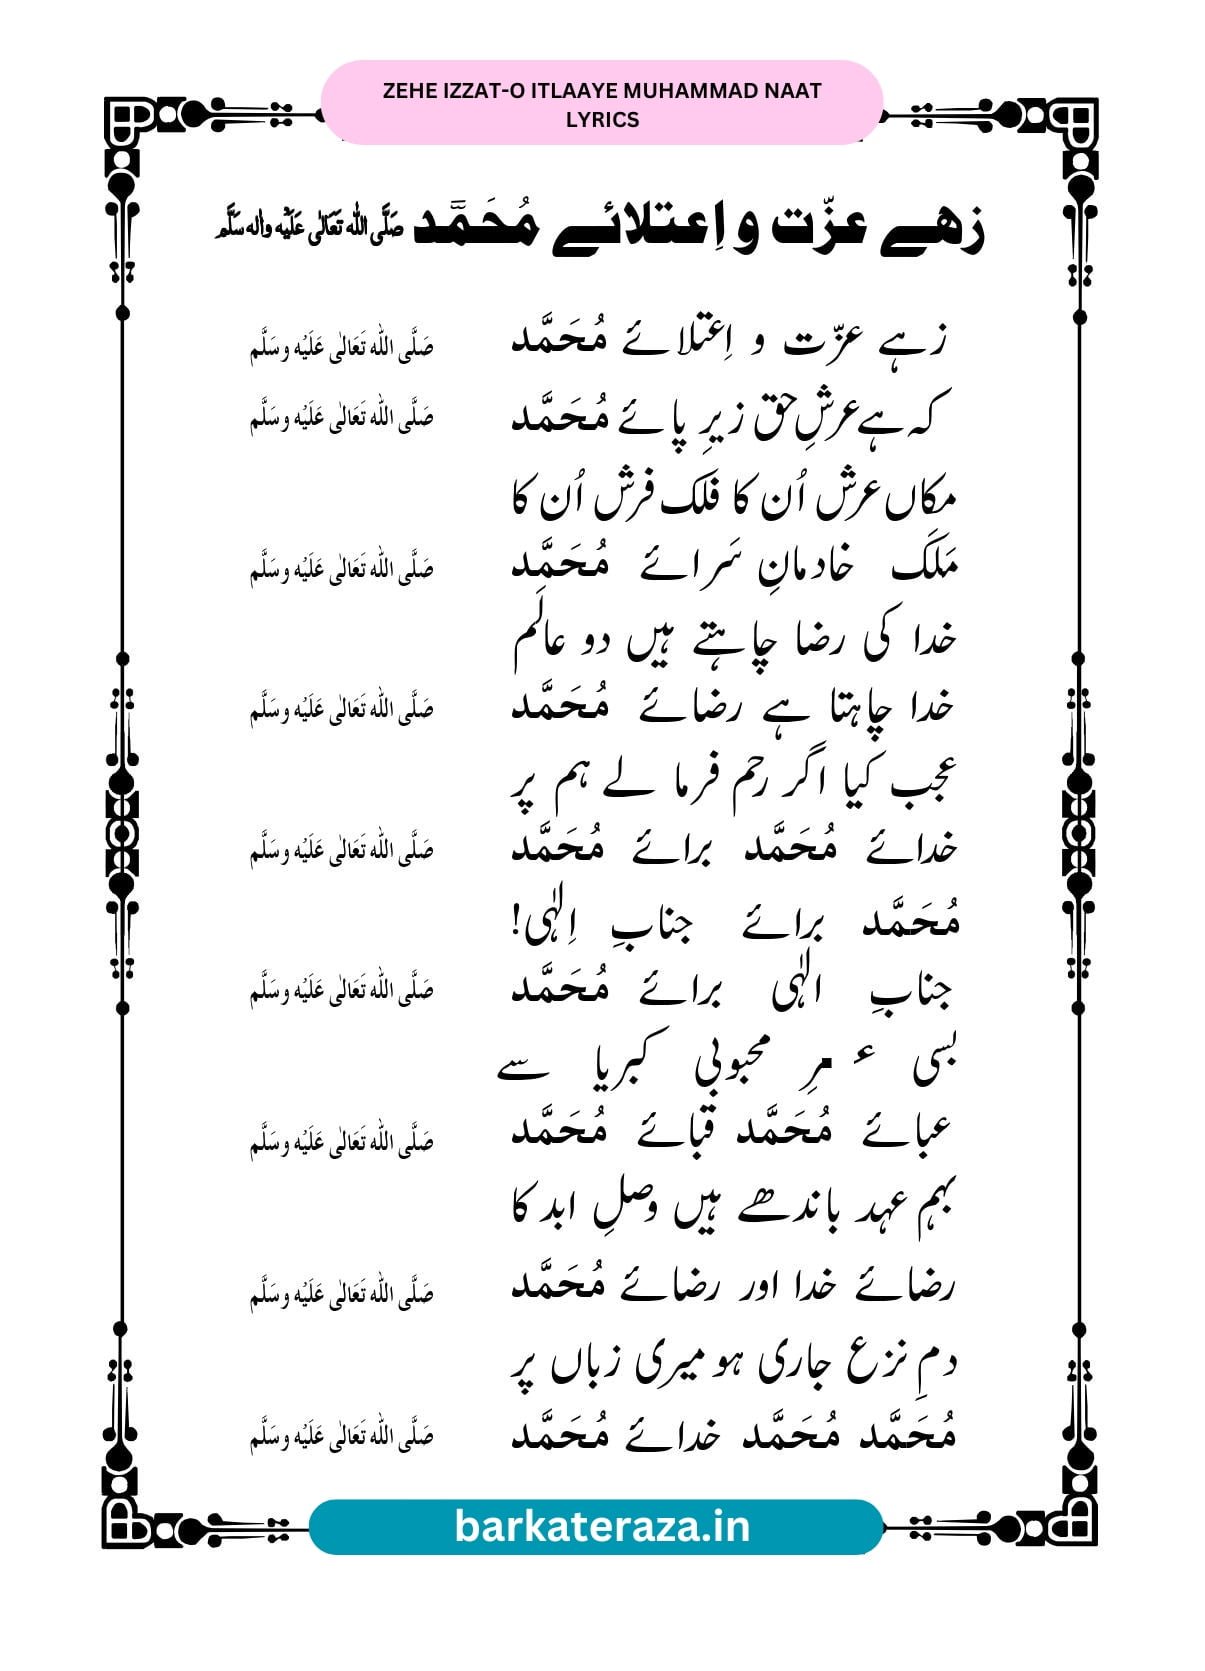 ZEHE IZZAT-O ITLAAYE MUHAMMAD NAAT
LYRICS
زہے عزّت و اِعتلائے مُحَمَّد صَلَّی اللہ تَعَالٰی عَلَیْہ واٰلہ سَلَّم
زہے عزّت و اِعتلائے مُحَمَّد صَلَّی اللہ تَعَالٰی عَلَیْہ وسَلَّم
کہ ہے عرشِ حق زیرِ پائے مُحَمَّد صَلَّی اللہ تَعَالٰی عَلَیْہ وسَلَّم
مکاں عرش اُن کا فلک فرش اُن کا
مَلَک خادمانِ سَرائے مُحَمَّد صَلَّی اللہ تَعَالٰی عَلَیْہ وسَلَّم
خدا کی رضا چاہتے ہیں دو عالَم
خدا چاہتا ہے رضائے مُحَمَّد صَلَّی اللہ تَعَالٰی عَلَیْہ وسَلَّم
عجب کیا اگر رحم فرما لے ہم پر
خدائے مُحَمَّد برائے مُحَمَّد صَلَّی اللہ تَعَالٰی عَلَیْہ وسَلَّم
مُحَمَّد برائے جنابِ اِلٰہی!
جنابِ الٰہی برائے مُحَمَّد صَلَّی اللہ تَعَالٰی عَلَیْہ وسَلَّم
بسی ء مرِ محبوبی کبریا سے
عبائے مُحَمَّد قبائے مُحَمَّد صَلَّی اللہ تَعَالٰی عَلَیْہ وسَلَّم
بہم عہد باندھے ہیں وصلِ ابد کا
رضائے خدا اور رضائے مُحَمَّد صَلَّی اللہ تَعَالٰی عَلَیْہ وسَلَّم
دمِ نزع جاری ہو میری زباں پر
مُحَمَّد مُحَمَّد خدائے مُحَمَّد صَلَّی اللہ تَعَالٰی عَلَیْہ وسَلَّم
barkateraza.in